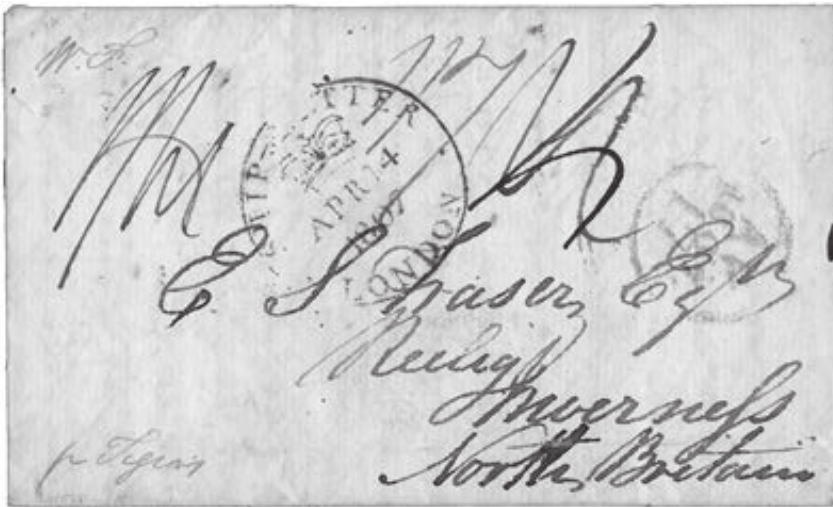 W. F.
SHIP LETTER
APR 14
1807
LONDON
E S Fraser, Esqr
Reelig
Inverneſs
North Britain
pr Tigris